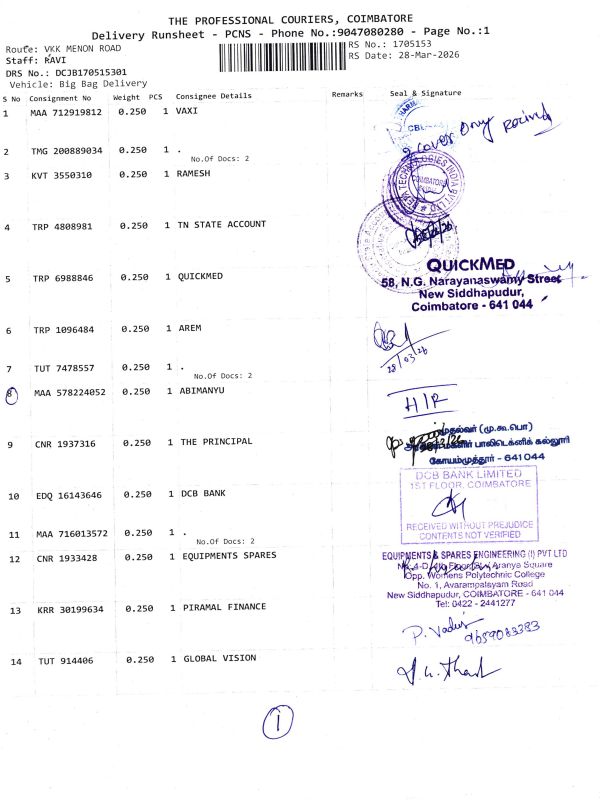 THE PROFESSIONAL COURIERS, COIMBATORE
Delivery Runsheet - PCNS - Phone No.:9047080280 - Page No.:1
Route: VKK MENON ROAD
RS No.: 1705153
Staff: RAVI
RS Date: 28-Mar-2026
DRS No.: DCJB170515301
Vehicle: Big Bag Delivery
S No Consignment No Weight PCS Consignee Details Remarks Seal & Signature
1 MAA 712919812 0.250 1 VAXI
2 cover only recived
2 TMG 200889034 0.250 1 .
No.Of Docs: 2
3 KVT 3550310 0.250 1 RAMESH
COIMBATORE
4 TRP 4808981 0.250 1 TN STATE ACCOUNT
5 TRP 6988846 0.250 1 QUICKMED
QUICKMED
58, N.G. Narayanaswamy Street
New Siddhapudur,
Coimbatore - 641 044
6 TRP 1096484 0.250 1 AREM
28/03/26
7 TUT 7478557 0.250 1 .
No.Of Docs: 2
8 MAA 578224052 0.250 1 ABIMANYU
H/R
9 CNR 1937316 0.250 1 THE PRINCIPAL
முதல்வர் (மு.கூ.பொ)
மகளிர் பாலிடெக்னிக் கல்லூரி
கோயம்முத்தூர் - 641 044
10 EDQ 16143646 0.250 1 DCB BANK
DCB BANK LIMITED
1ST FLOOR, COIMBATORE
RECEIVED WITHOUT PREJUDICE
CONTENTS NOT VERIFIED
11 MAA 716013572 0.250 1 .
No.Of Docs: 2
12 CNR 1933428 0.250 1 EQUIPMENTS SPARES
EQUIPMENTS & SPARES ENGINEERING (I) PVT LTD
Aranya Square
Opp. Womens Polytechnic College
No. 1, Avarampalayam Road
New Siddhapudur, COIMBATORE - 641 044
Tel: 0422 - 2441277
13 KRR 30199634 0.250 1 PIRAMAL FINANCE
P. Vadiv
9659083383
14 TUT 914406 0.250 1 GLOBAL VISION
1